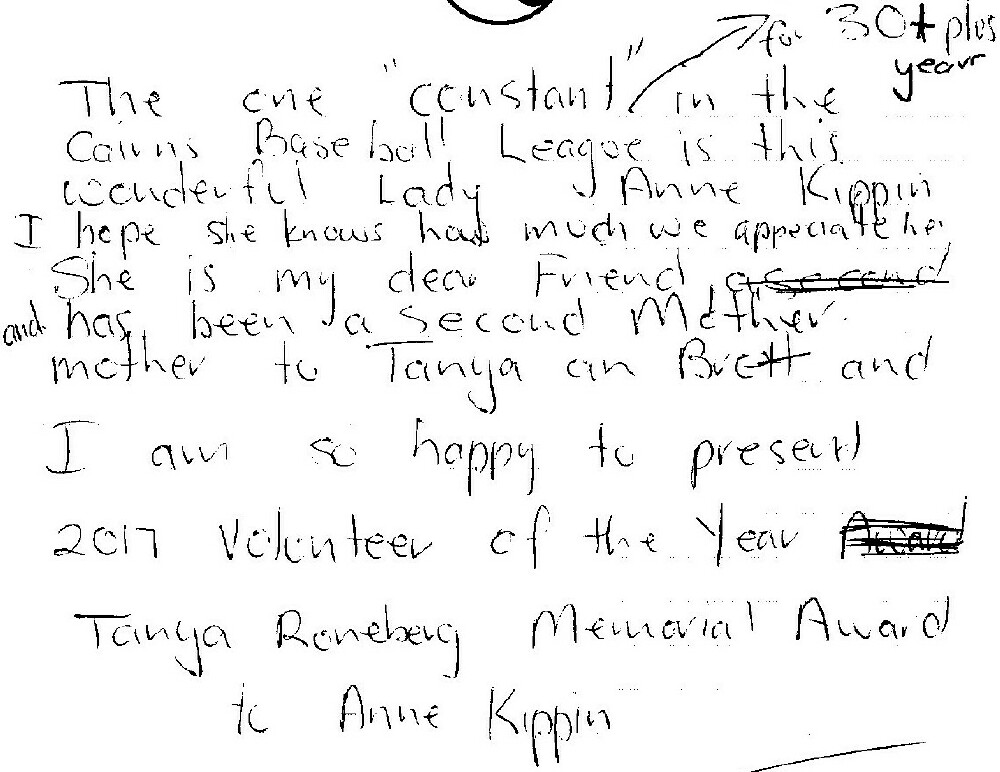 for 30+ plus
years
The one "constant" in the
Cairns Baseball League is this
wonderful Lady, Anne Kippin
I hope she knows how much we appeciate her
She is my dear Friend, a second
and has been a second Mother.
mother to Tanya an Brett and
I am so happy to present
2017 Volunteer of the Year Award
Tanya Roneberg Memorial Award
to Anne Kippin